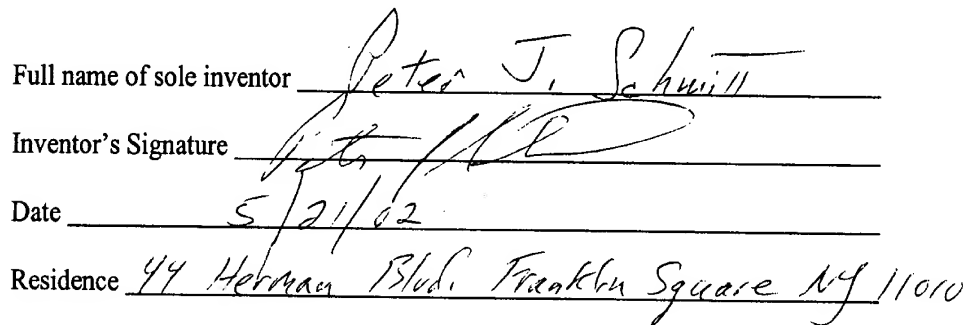 Full name of sole inventor Peter J. Schmitt
Inventor's Signature
Date 5/21/02
Residence 44 Herman Blvd. Franklin Square NY 11010